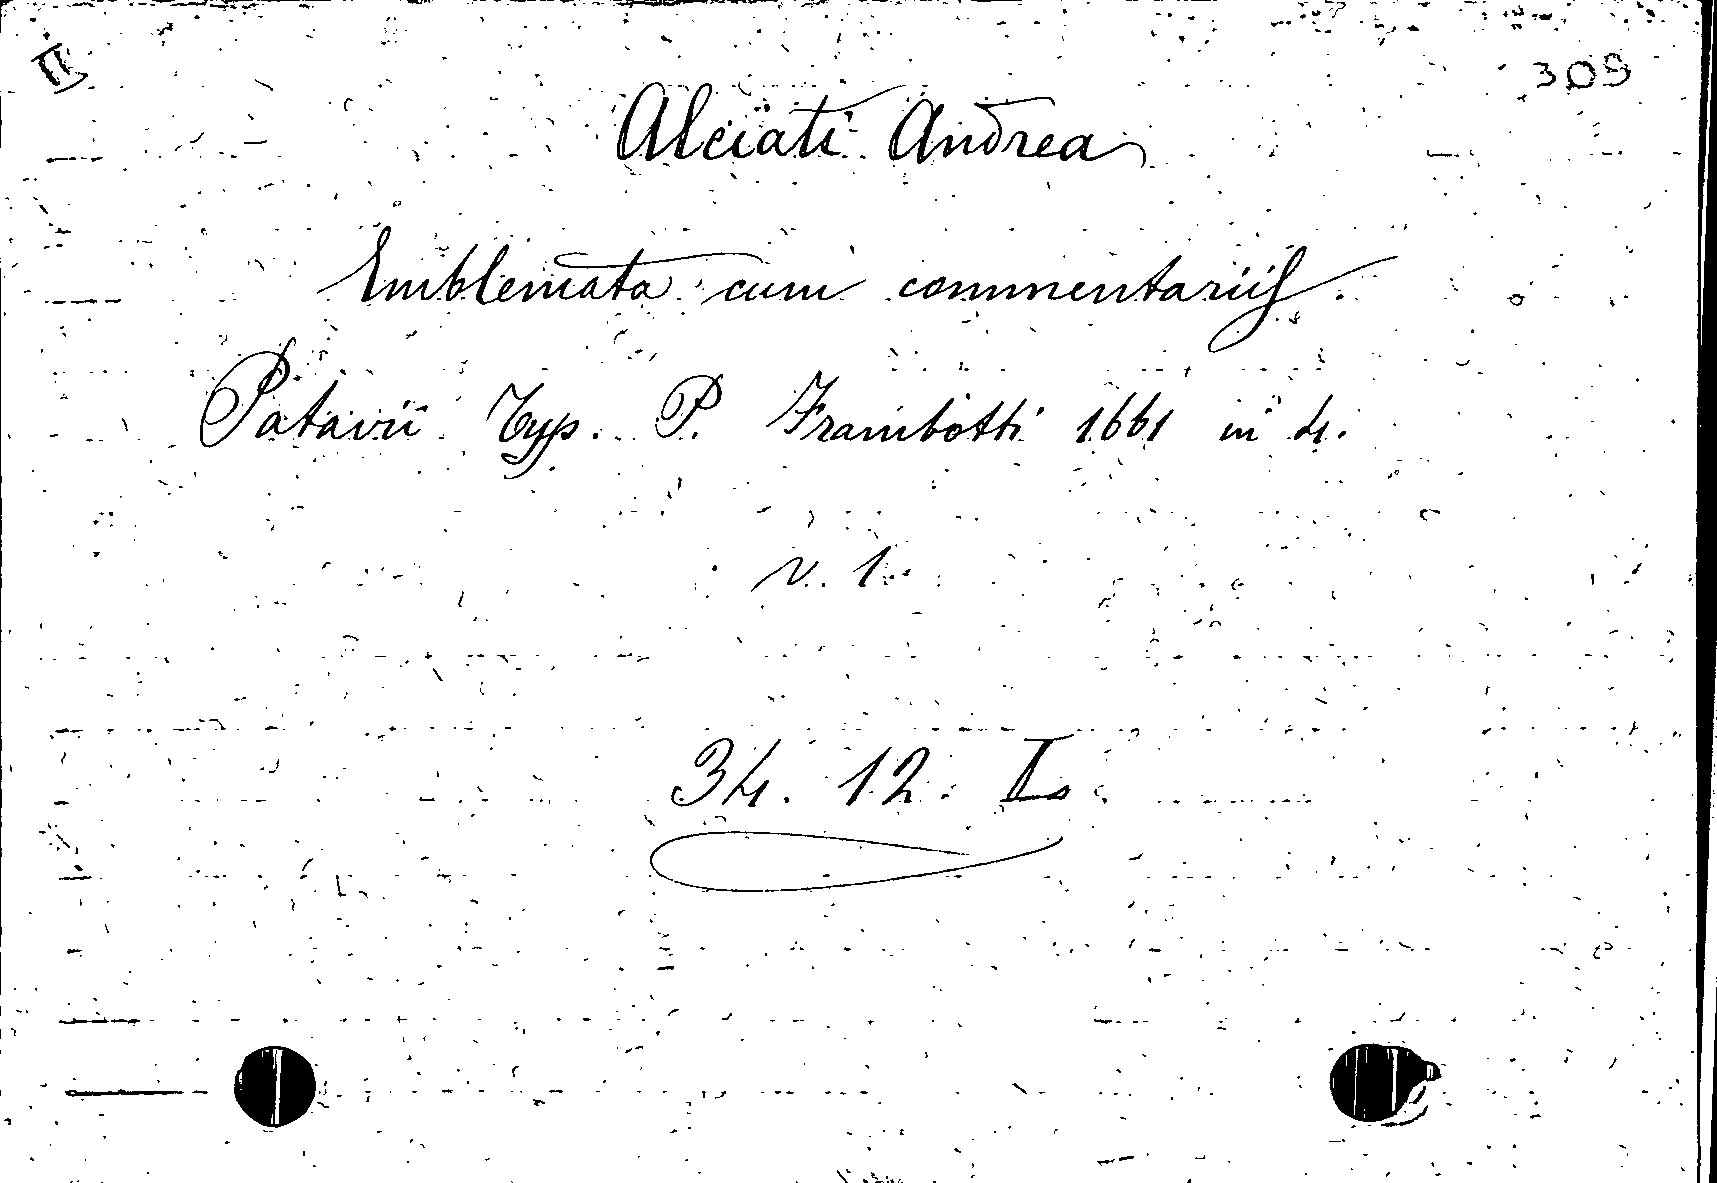 II 309
Alciati Andrea
Emblemata cum commentariis.
Patavii Typ. P. Frambotti 1661 in 4.
v. 1.
34. 12. I.